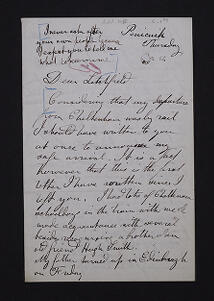 I never ask after
your own people because
I expect you to tell me
what
Penicuik
Thursday
Dear Litchfield
Considering that my departure
from Cheltenham was by rail
I should have written to you
at once to announce my
safe arrival. It is a fact
however that this is the first
letter I have written since I
left you. I had lots of Cheltenham
schoolboys in the train with me &
made acquaintance with several
besides a brother of an
old friend Hugh Smith.
My father turned up in Edinburgh
on Friday